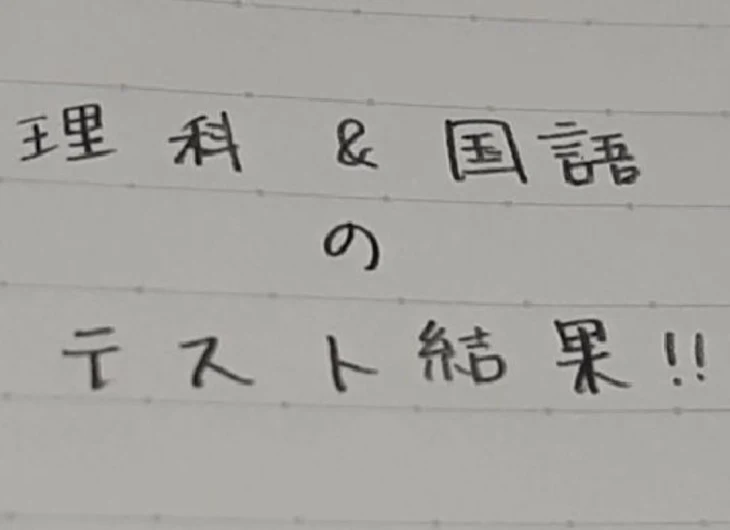 理科&国語
の
テスト結果!!